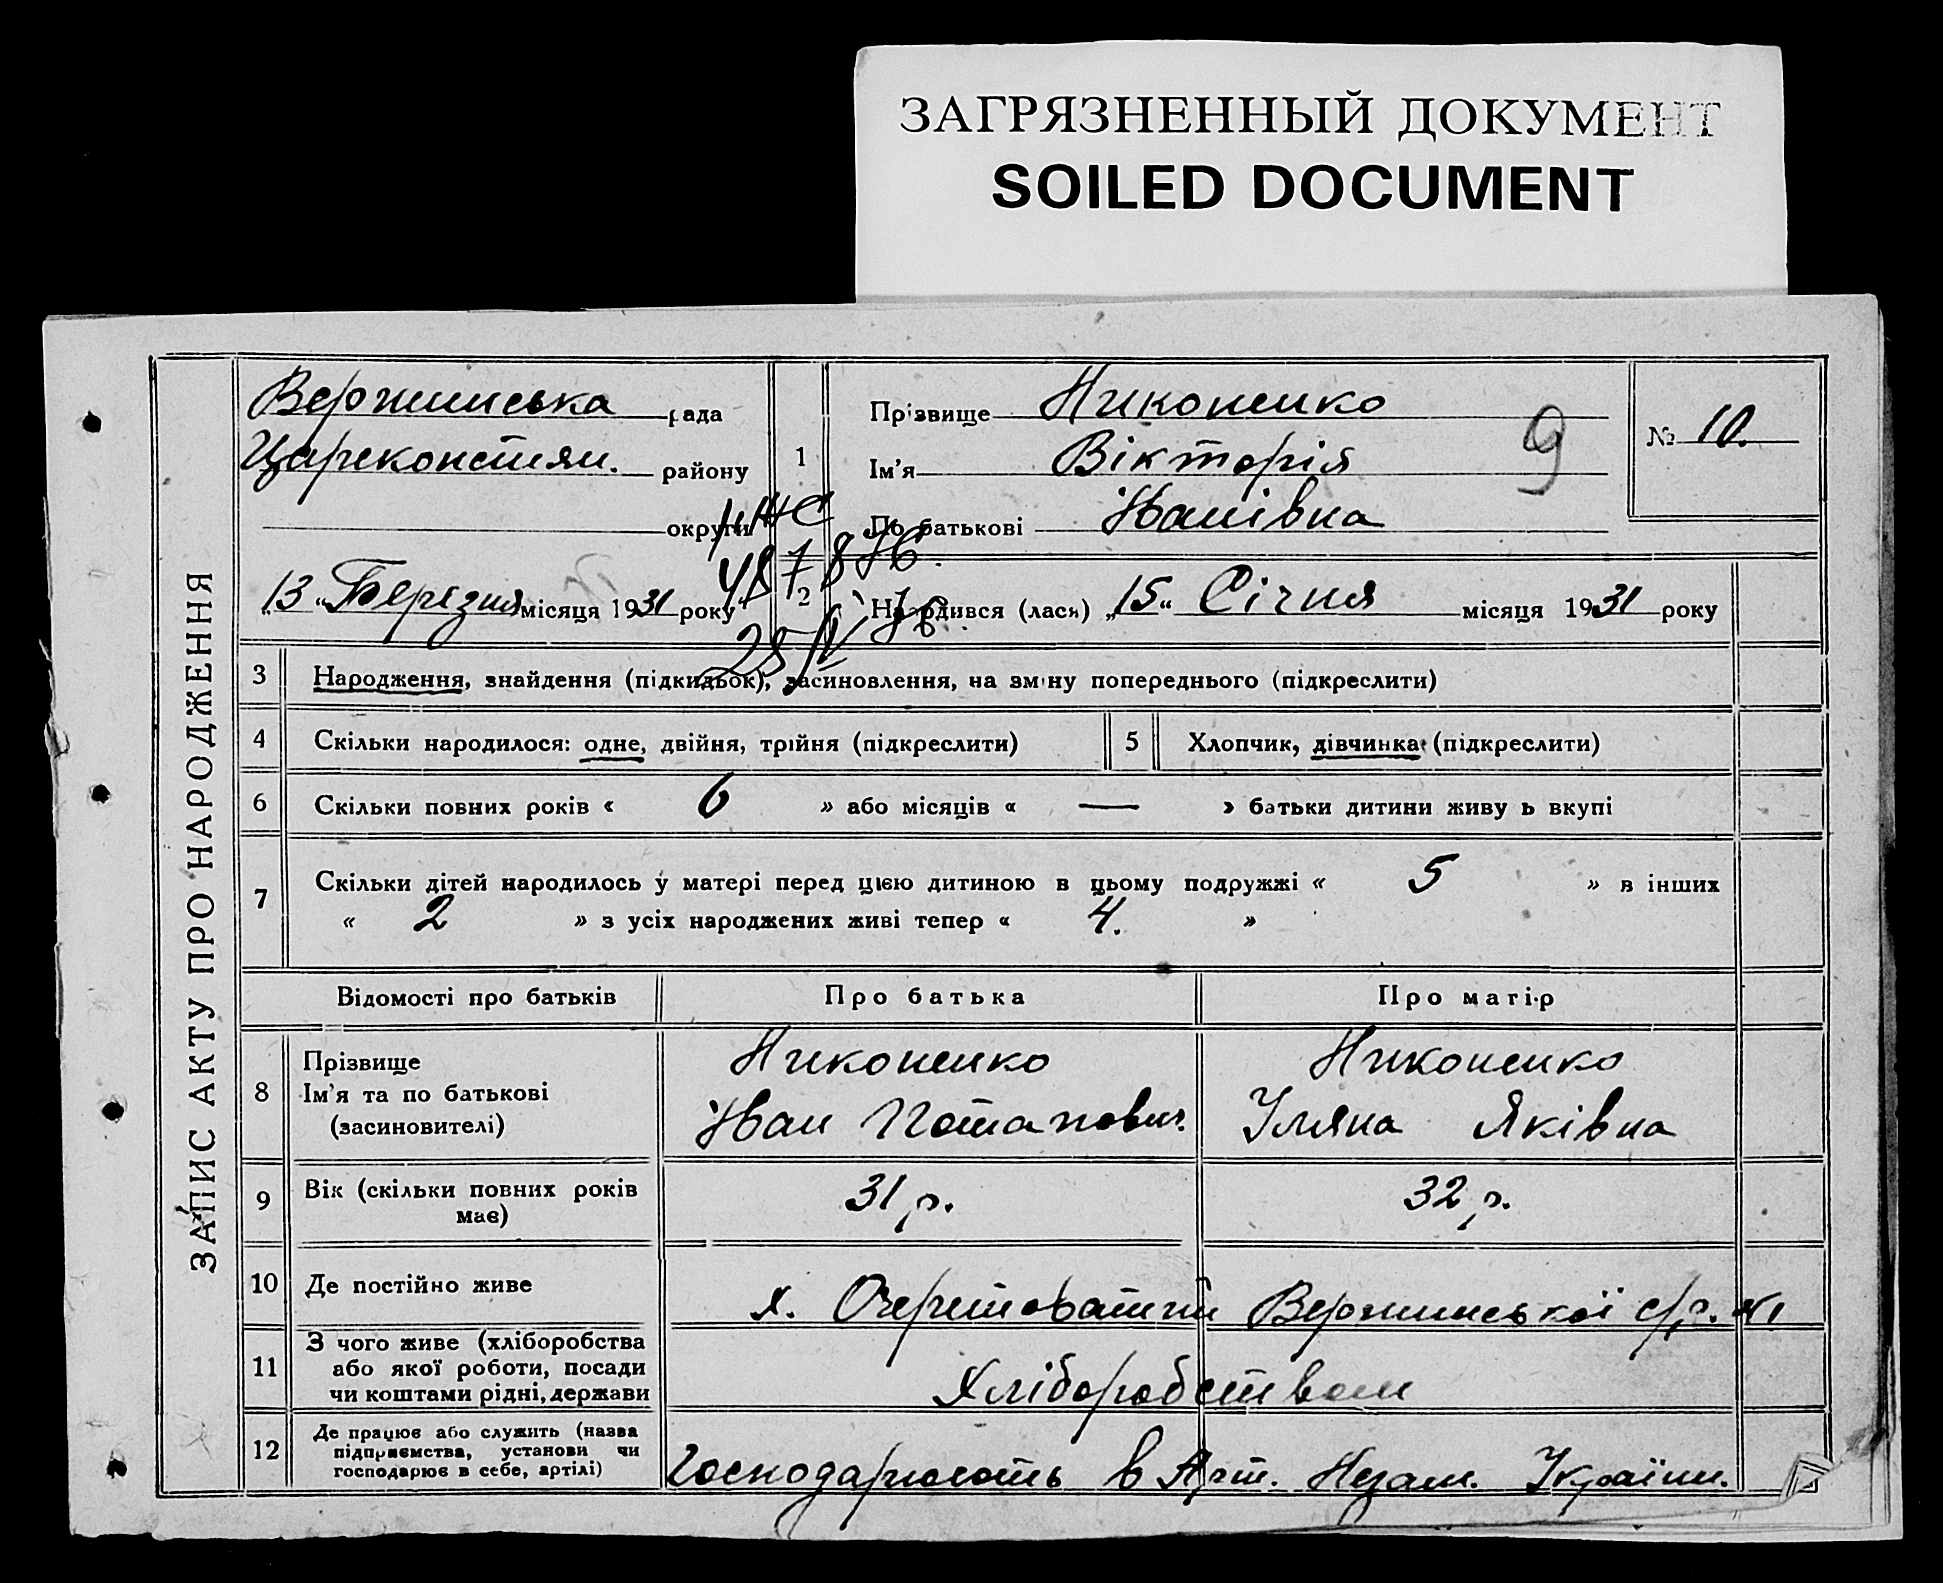 ЗАГРЯЗНЕННЫЙ ДОКУМЕНТ
SOILED DOCUMENT
ЗАПИС АКТУ ПРО НАРОДЖЕННЯ
Вержинська рада
Цареконстян. району
округи
„13“ Березня місяця 1931 року
1
Прізвище Никоненко
Ім’я Вікторія
По батькові Іванівна
9
№ 10.
487876
2 Народився (лася) „15“ Січня місяця 1931 року
3 Народження, знайдення (підкидьок), засиновлення, на зміну попереднього (підкреслити)
4 Скільки народилося: одне, двійня, трійня (підкреслити) 5 Хлопчик, дівчинка (підкреслити)
6 Скільки повних років « 6 » або місяців « — » батьки дитини живу ь вкупі
7 Скільки дітей народилось у матері перед цією дитиною в цьому подружжі « 5 » в інших
« 2 » з усіх народжених живі тепер « 4. »
Відомості про батьків Про батька Про матір
8 Прізвище Никоненко Никоненко
Ім’я та по батькові Іван Потапович Уляна Яківна
(засиновителі)
9 Вік (скільки повних років має) 31 р. 32 р.
10 Де постійно живе х. Очеретоватий Вержинської с/р.
11 З чого живе (хліборобства
або якої роботи, посади
чи коштами рідні, держави Хліборобством
12 Де працює або служить (назва
підприємства, установи чи
господарює в себе, артілі) господарюють в Арт. Незам. України.